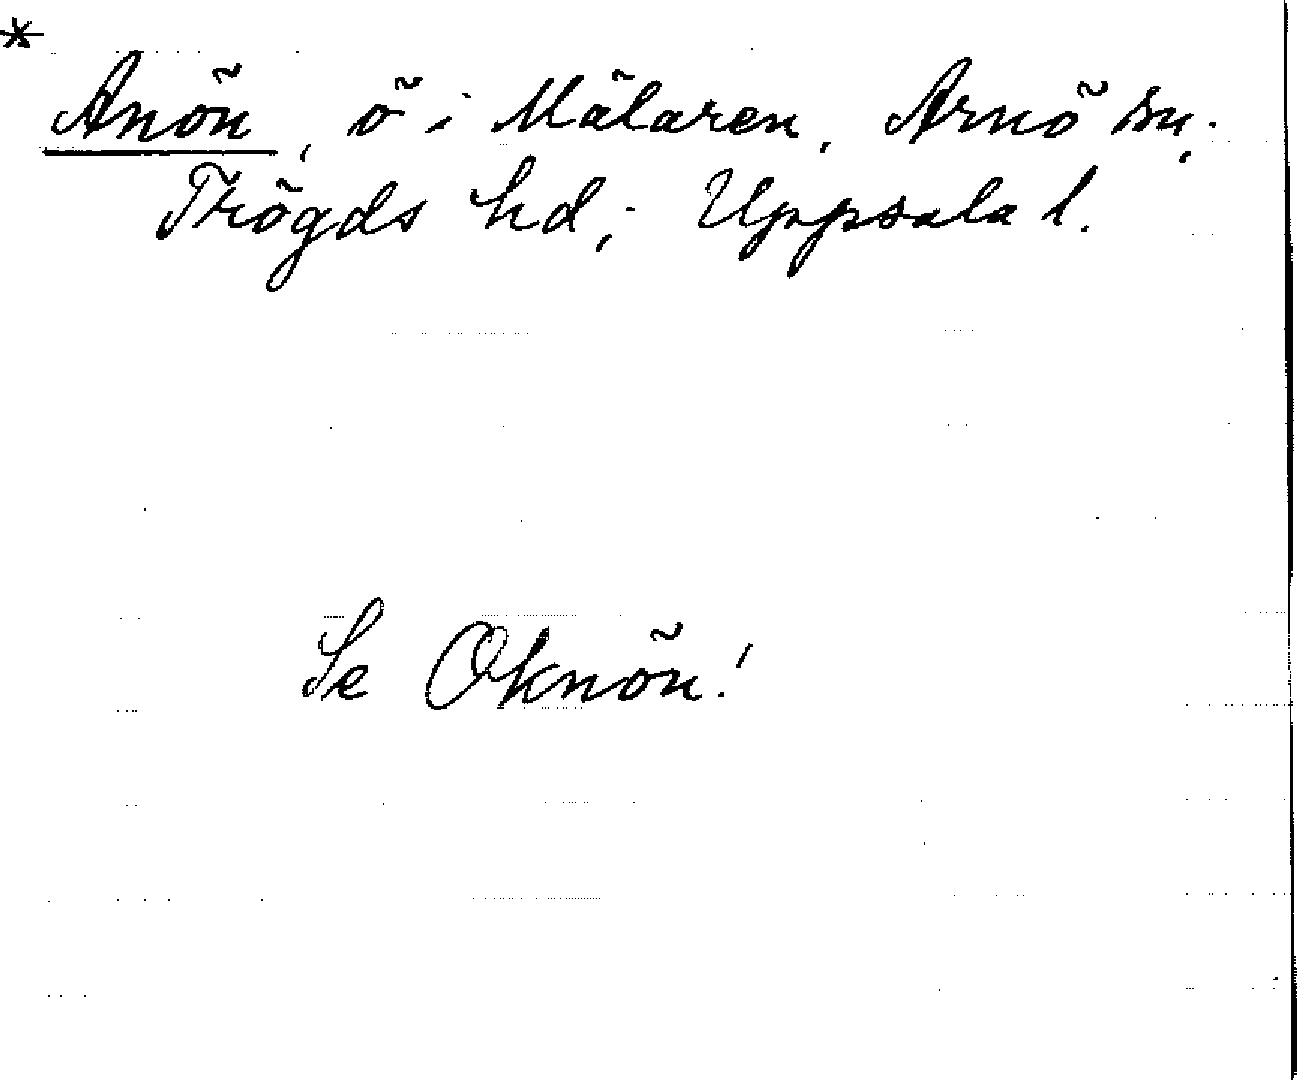 *
Anön, ö i Mälaren, Arnö sn,
Trögds hd, Uppsala l.
Se Oknön!